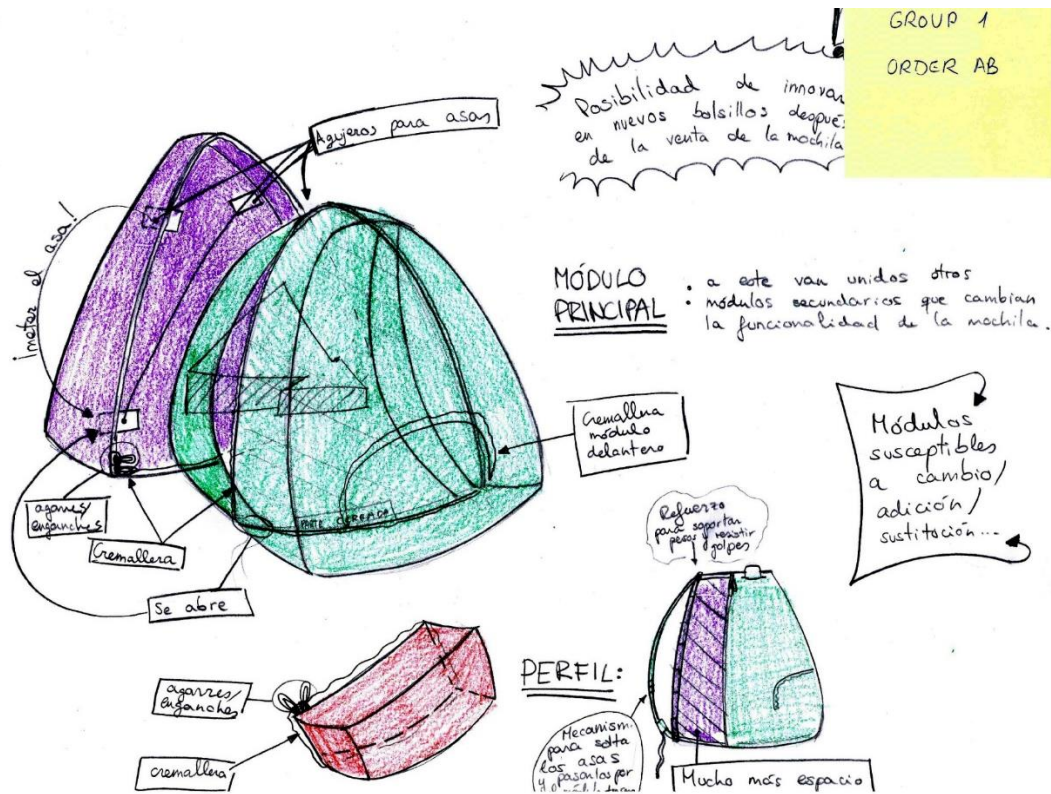 GROUP 1
ORDER AB
Posibilidad de innovar
en nuevos bolsillos despué
de la venta de la mochila
Agujeros para asas
¡meter el asa!
MÓDULO
PRINCIPAL
: a este van unidos otros
módulos secundarios que cambian
la funcionalidad de la mochila.
Cremallera
módulo
delantero
Módulos
susceptibles
a cambio/
adición/
sustitución...
agarres/
enganches
Cremallera
PARTE CERRADA
Se abre
Refuerzo
para soportar
pesos y resistir
golpes
PERFIL:
agarres/
enganches
cremallera
Mecanism
para solta
las asas
y pasarlas por
Mucho más espacio